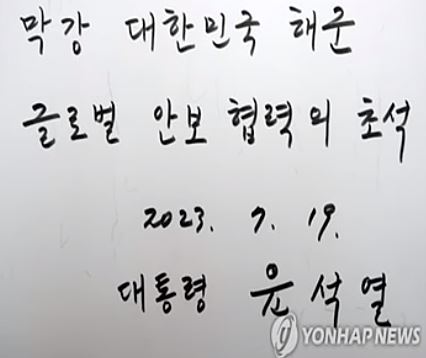 막강 대한민국 해군
글로벌 안보 협력의 초석
2023. 7. 19.
대통령 윤석열
YONHAP NEWS